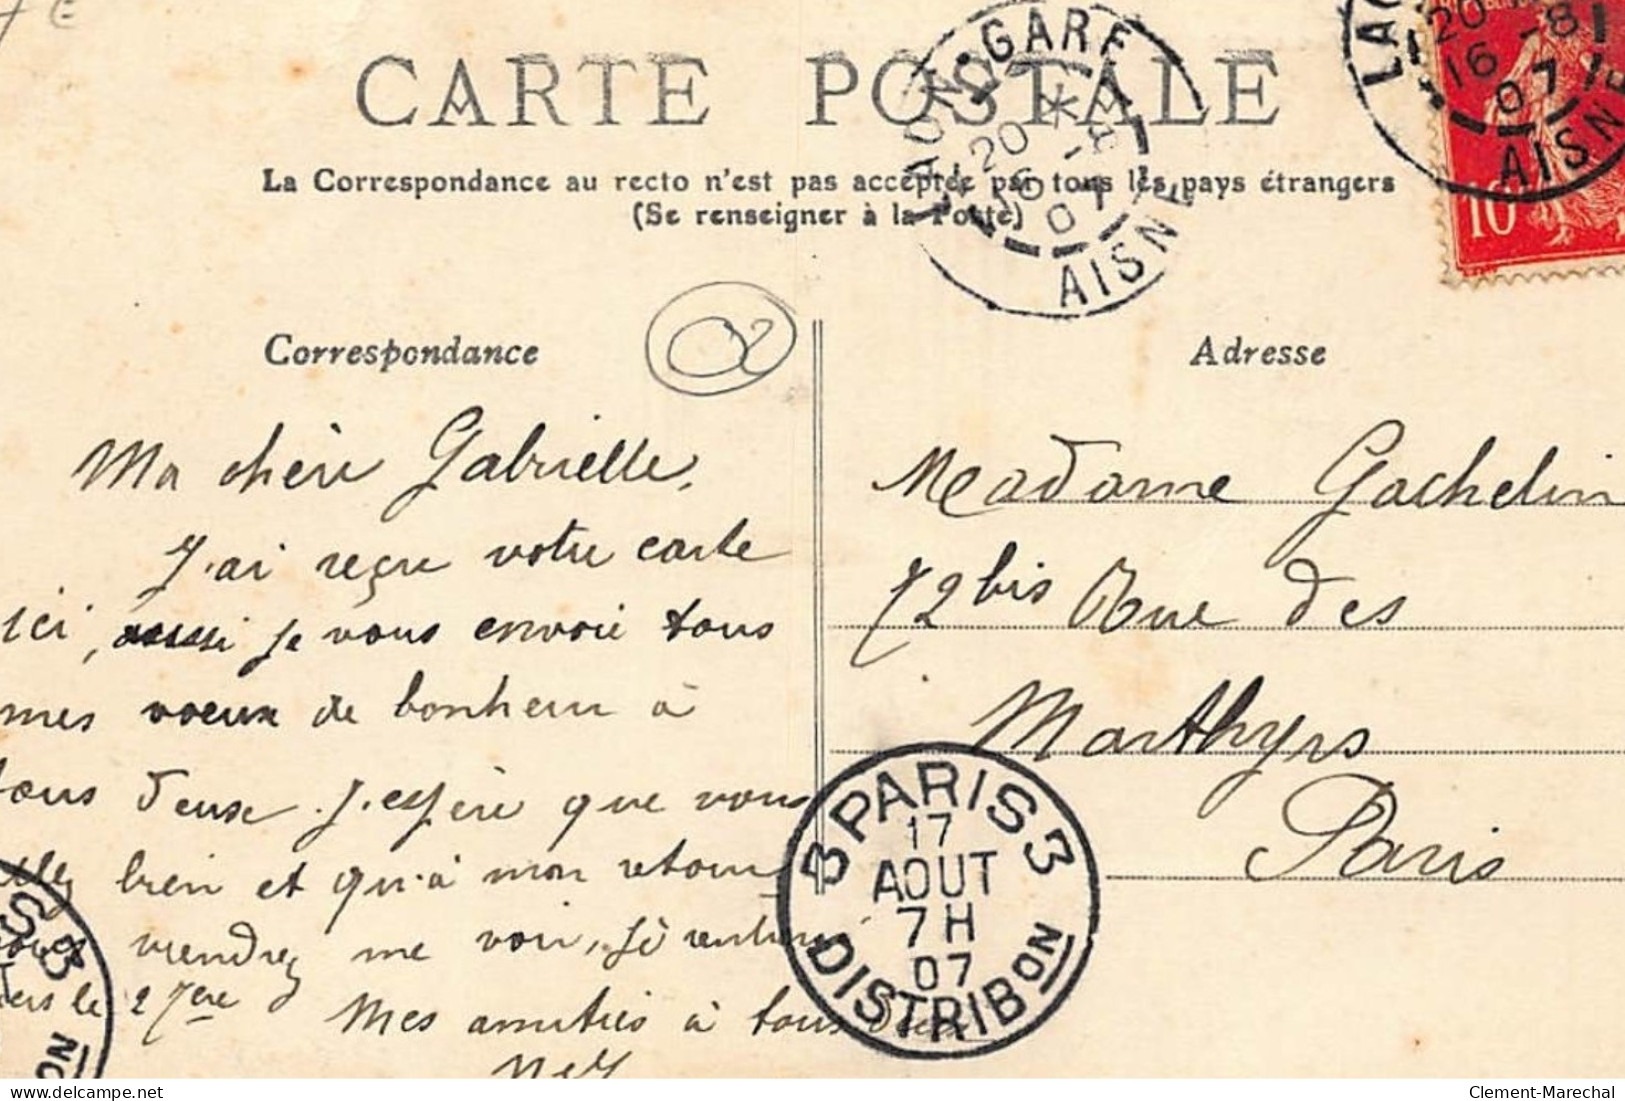 CARTE POSTALE
La Correspondance au recto n'est pas acceptée par tous les pays étrangers
(Se renseigner à la Poste)
LAON-GARE
20
16 -8
07
AISNE
20
16 -8
07
AISNE
10
Correspondance
Adresse
Ma chère Gabrielle,
J'ai reçu votre carte
ici, aussi je vous envoie tous
mes voeux de bonheur à
tous deux. J'espère que vous
allez bien et qu'à mon retour
vous viendrez me voir, je rentrerai
vers le 27ere
Mes amitiés à tous deux
Madame Gachelin
72 bis Rue des
Marthyrs
Paris
3 PARIS 3
17
AOUT
7H
07
DISTRIBON
S 3
ON
Clement-Marechal